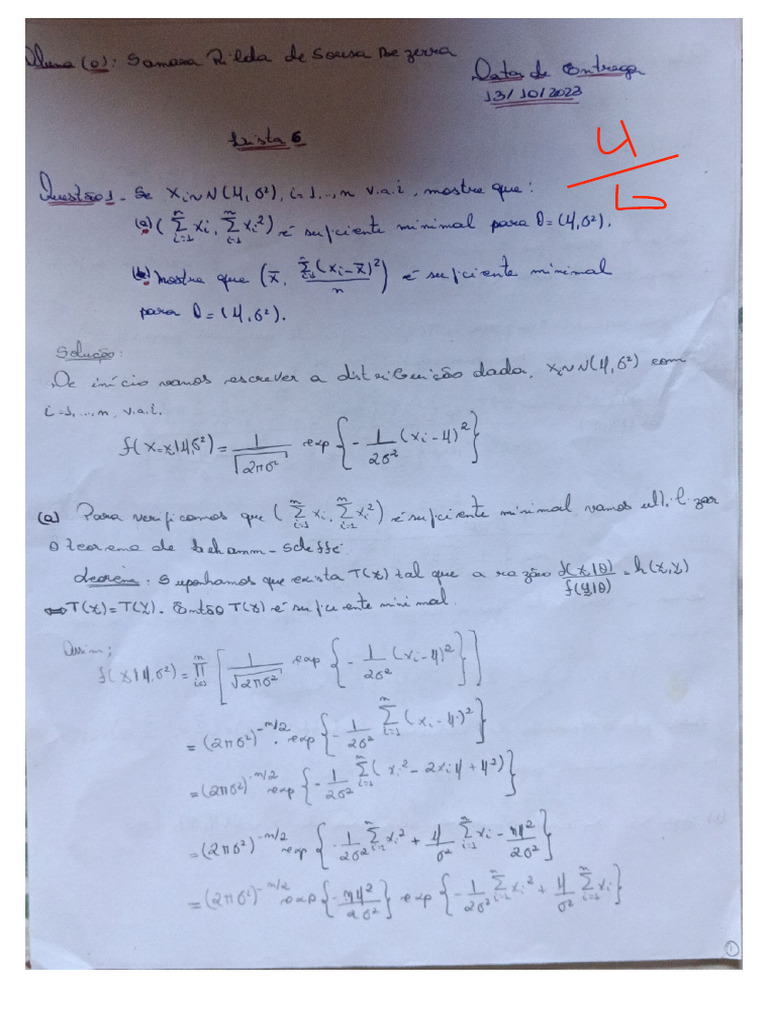 Aluna (o): Samara Rilda de Sousa Bezerra
Data de Entrega
13/10/2023
Lista 6
4
6
Questão 1 - Se Xi ~ N(μ, σ²), i=1,...,n v.a.i, mostre que:
(a) (∑_{i=1}^{n} xi, ∑_{i=1}^{n} xi²) é suficiente minimal para θ = (μ, σ²).
(b) mostre que (x̄, ∑_{i=1}^{n} (xi - x̄)²/n) é suficiente minimal
para θ = (μ, σ²).
Solução:
De início vamos escrever a distribuição dada, xi ~ N(μ, σ²) com
i=1,...,n, v.a.i.
f(X=x|μ,σ²) = 1/√(2πσ²) exp{-1/(2σ²) (xi - μ)²}
(a) Para verificamos que (∑_{i=1}^{n} xi, ∑_{i=1}^{n} xi²) é suficiente minimal vamos utilizar
o teorema de Lehamm-Scheffé.
teorema: Suponhamos que exista T(x) tal que a razão f(x|θ)/f(y|θ) = h(x,y)
⇔ T(x) = T(y). Então T(x) é suficiente minimal.
Assim;
f(x|μ,σ²) = ∏_{i=1}^{n} [1/√(2πσ²) exp{-1/(2σ²) (xi - μ)²}]
= (2πσ²)^{-n/2} . exp{-1/(2σ²) ∑_{i=1}^{n} (xi - μ)²}
= (2πσ²)^{-n/2} exp{-1/(2σ²) ∑_{i=1}^{n} (xi² - 2xiμ + μ²)}
= (2πσ²)^{-n/2} exp{-1/(2σ²) ∑_{i=1}^{n} xi² + μ/σ² ∑_{i=1}^{n} xi - nμ²/(2σ²)}
= (2πσ²)^{-n/2} exp{-nμ²/(2σ²)} exp{-1/(2σ²) ∑_{i=1}^{n} xi² + μ/σ² ∑_{i=1}^{n} xi}
1